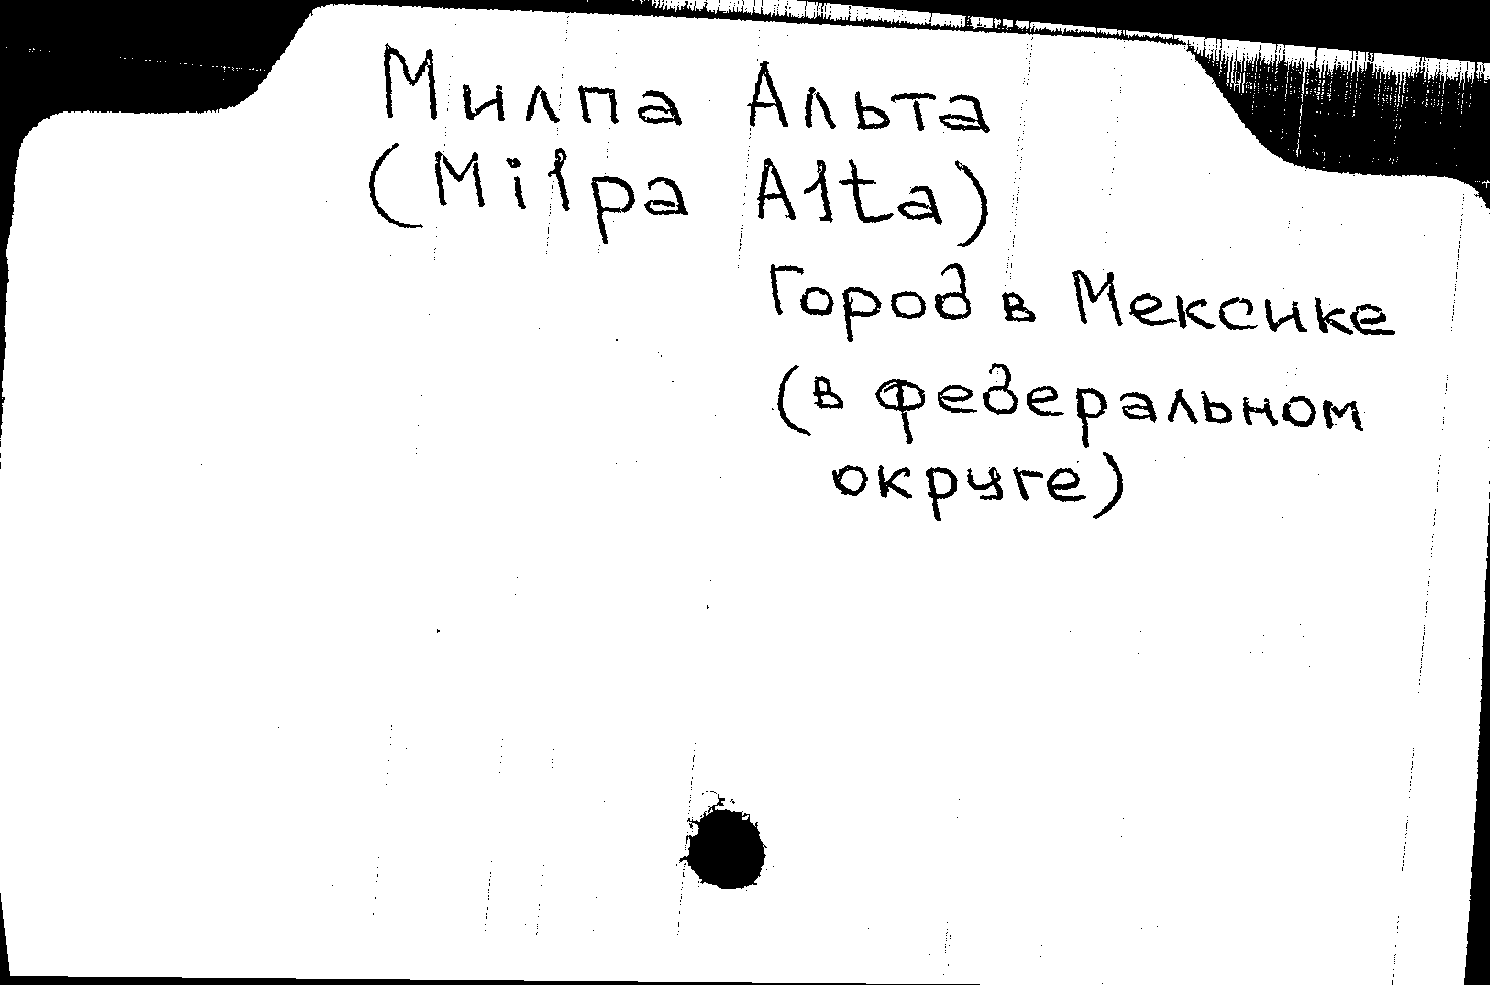 Милпа Альта
(Milpa Alta)
Город в Мексике
(в федеральном
округе)